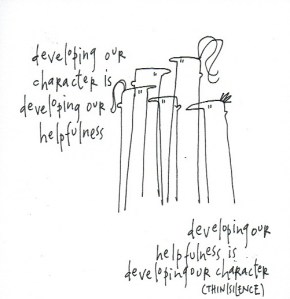 developing our
character is
developing our
helpfulness
developing our
helpfulness is
developing our character
(THIN|SILENCE)